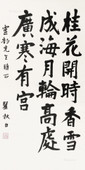 桂花開時香雪
成海月輪高處
廣寒有宮
先生